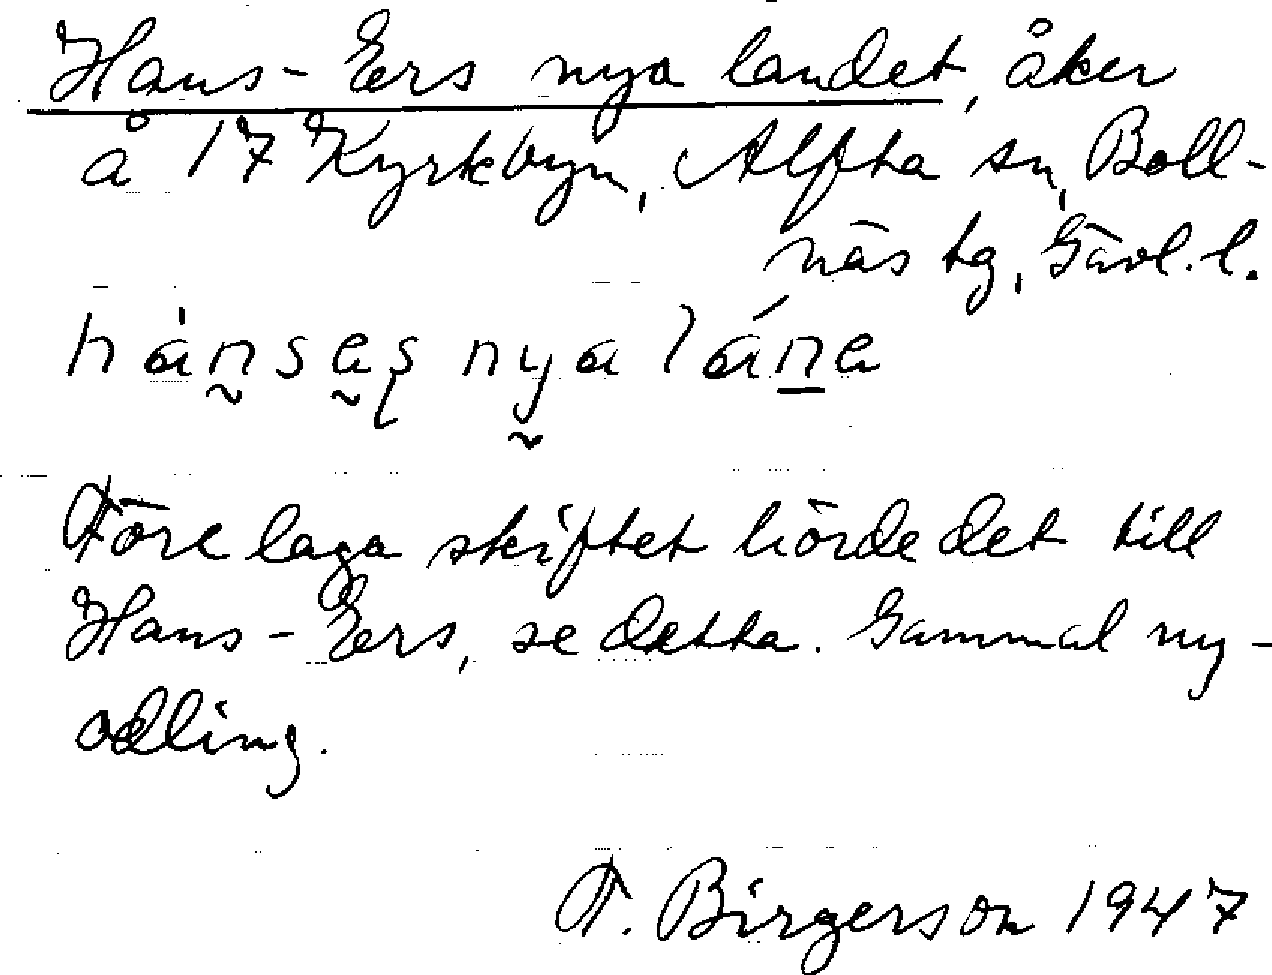 Hans-Ers nya landet, åker
å 17 Kyrkbyn, Alfta sn, Boll-
näs tg, Gävl. l.
hànsas nya lána
Före laga skiftet hörde det till
Hans-Ers, se detta. Gammal ny-
odling.
F. Birgerson 1947